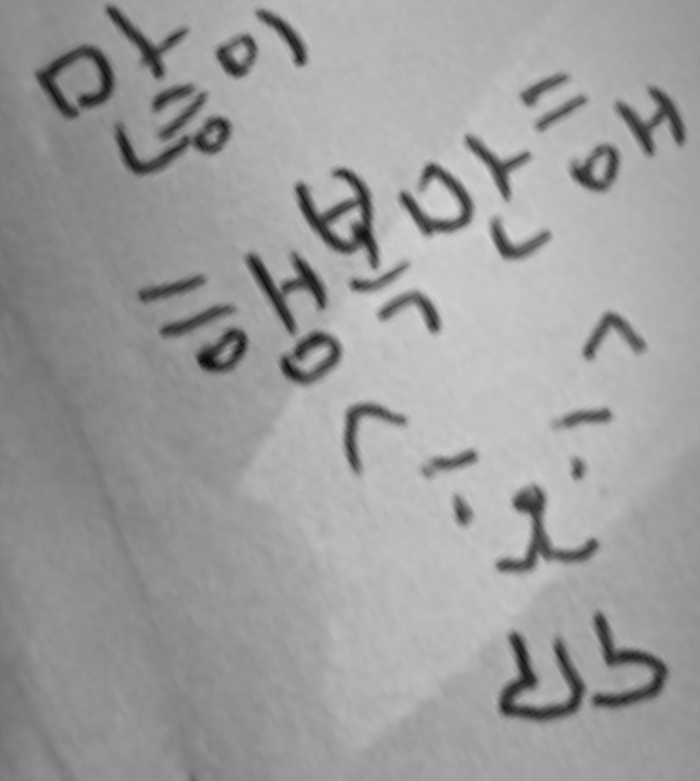 많이
행복만해